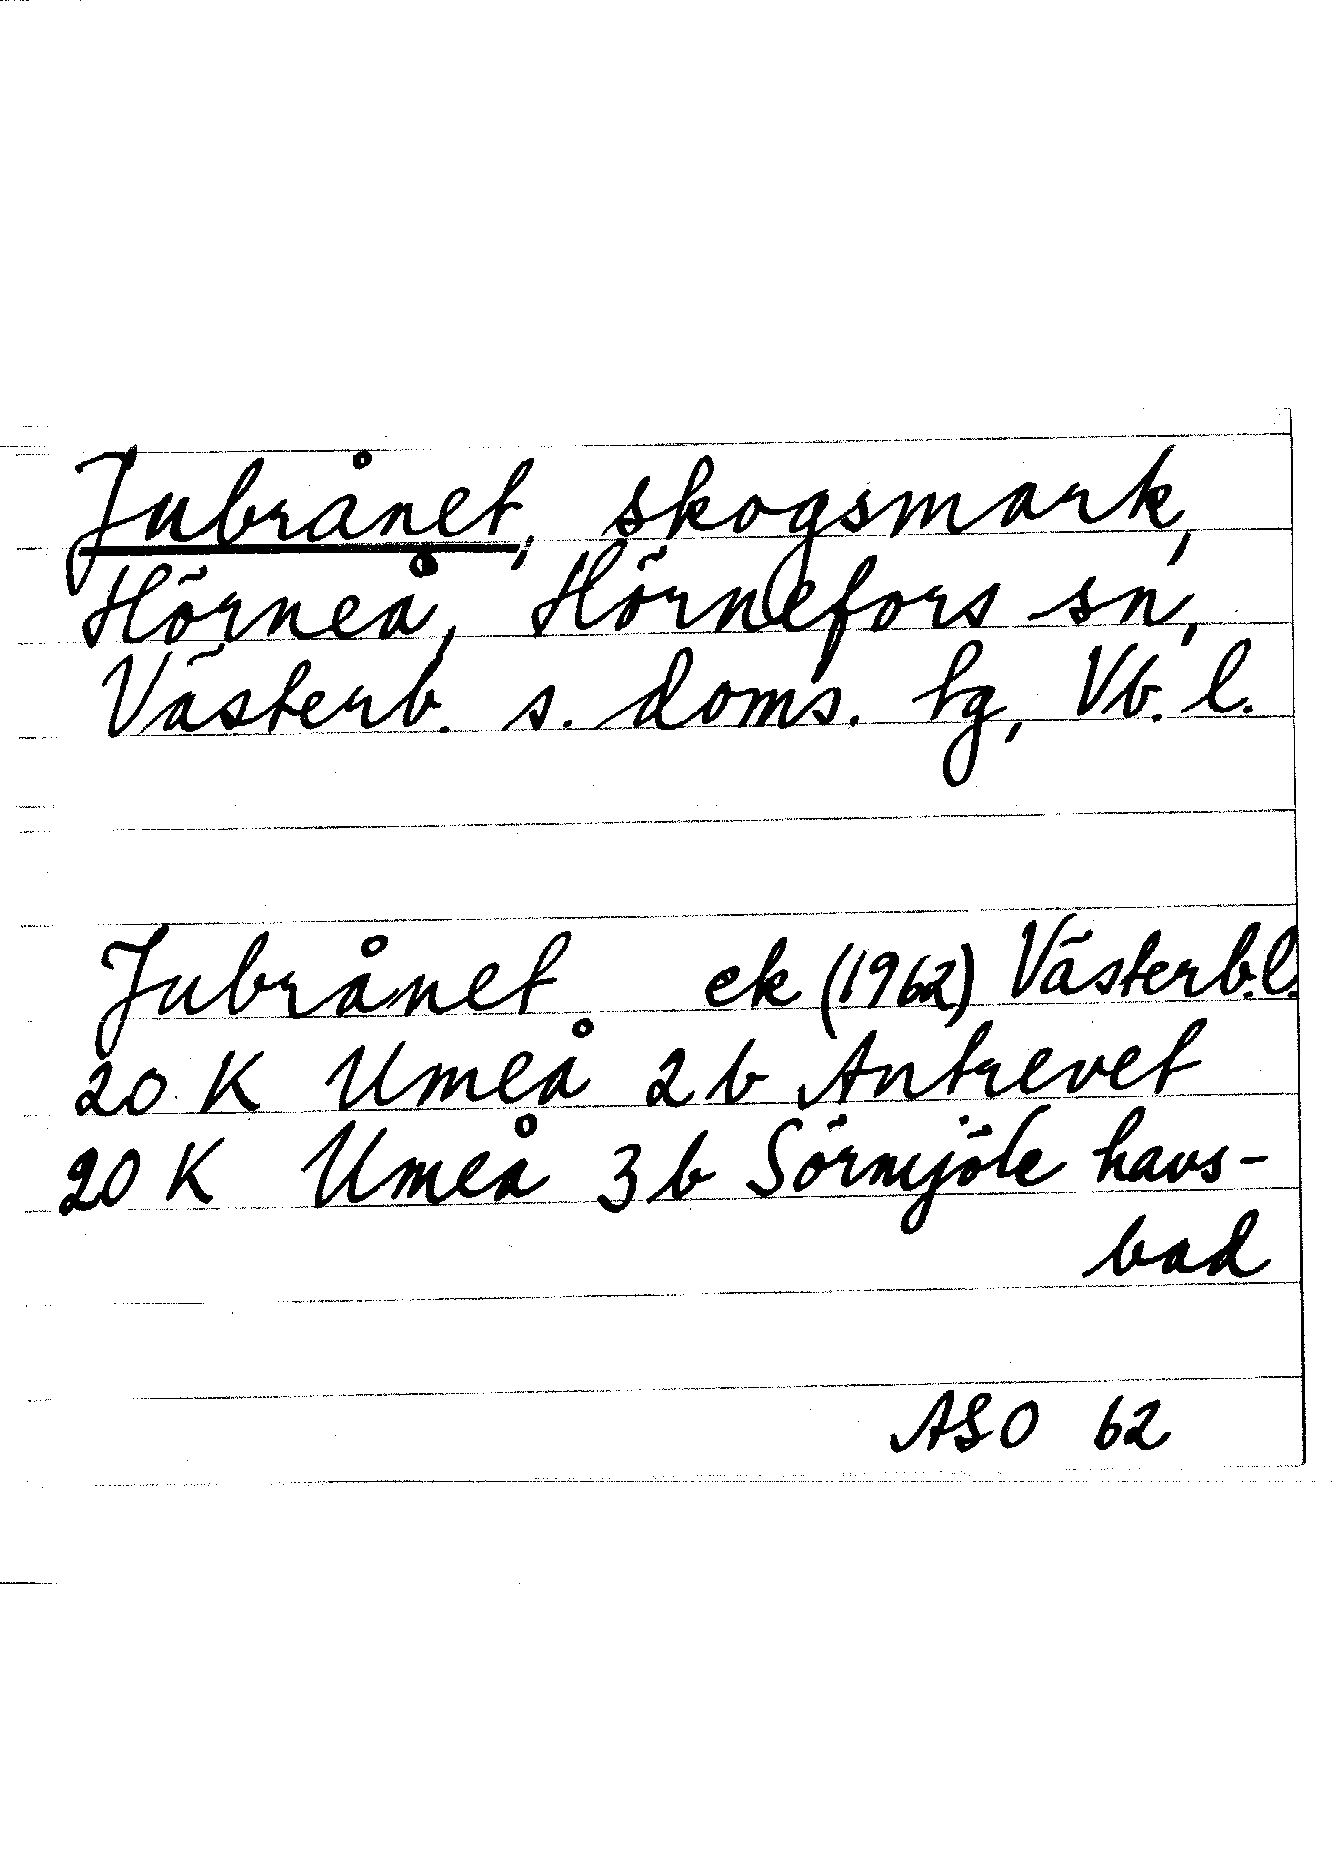 Jubrånet, skogsmark,
Hörneå, Hörnefors sn,
Västerb. s. doms. tg, Vb. l.
Jubrånet ek (1962) Västerb.l.
20 K Umeå 2 b Antrevet
20 K Umeå 3 b Sörmjöle havs-
bad
ASO 62